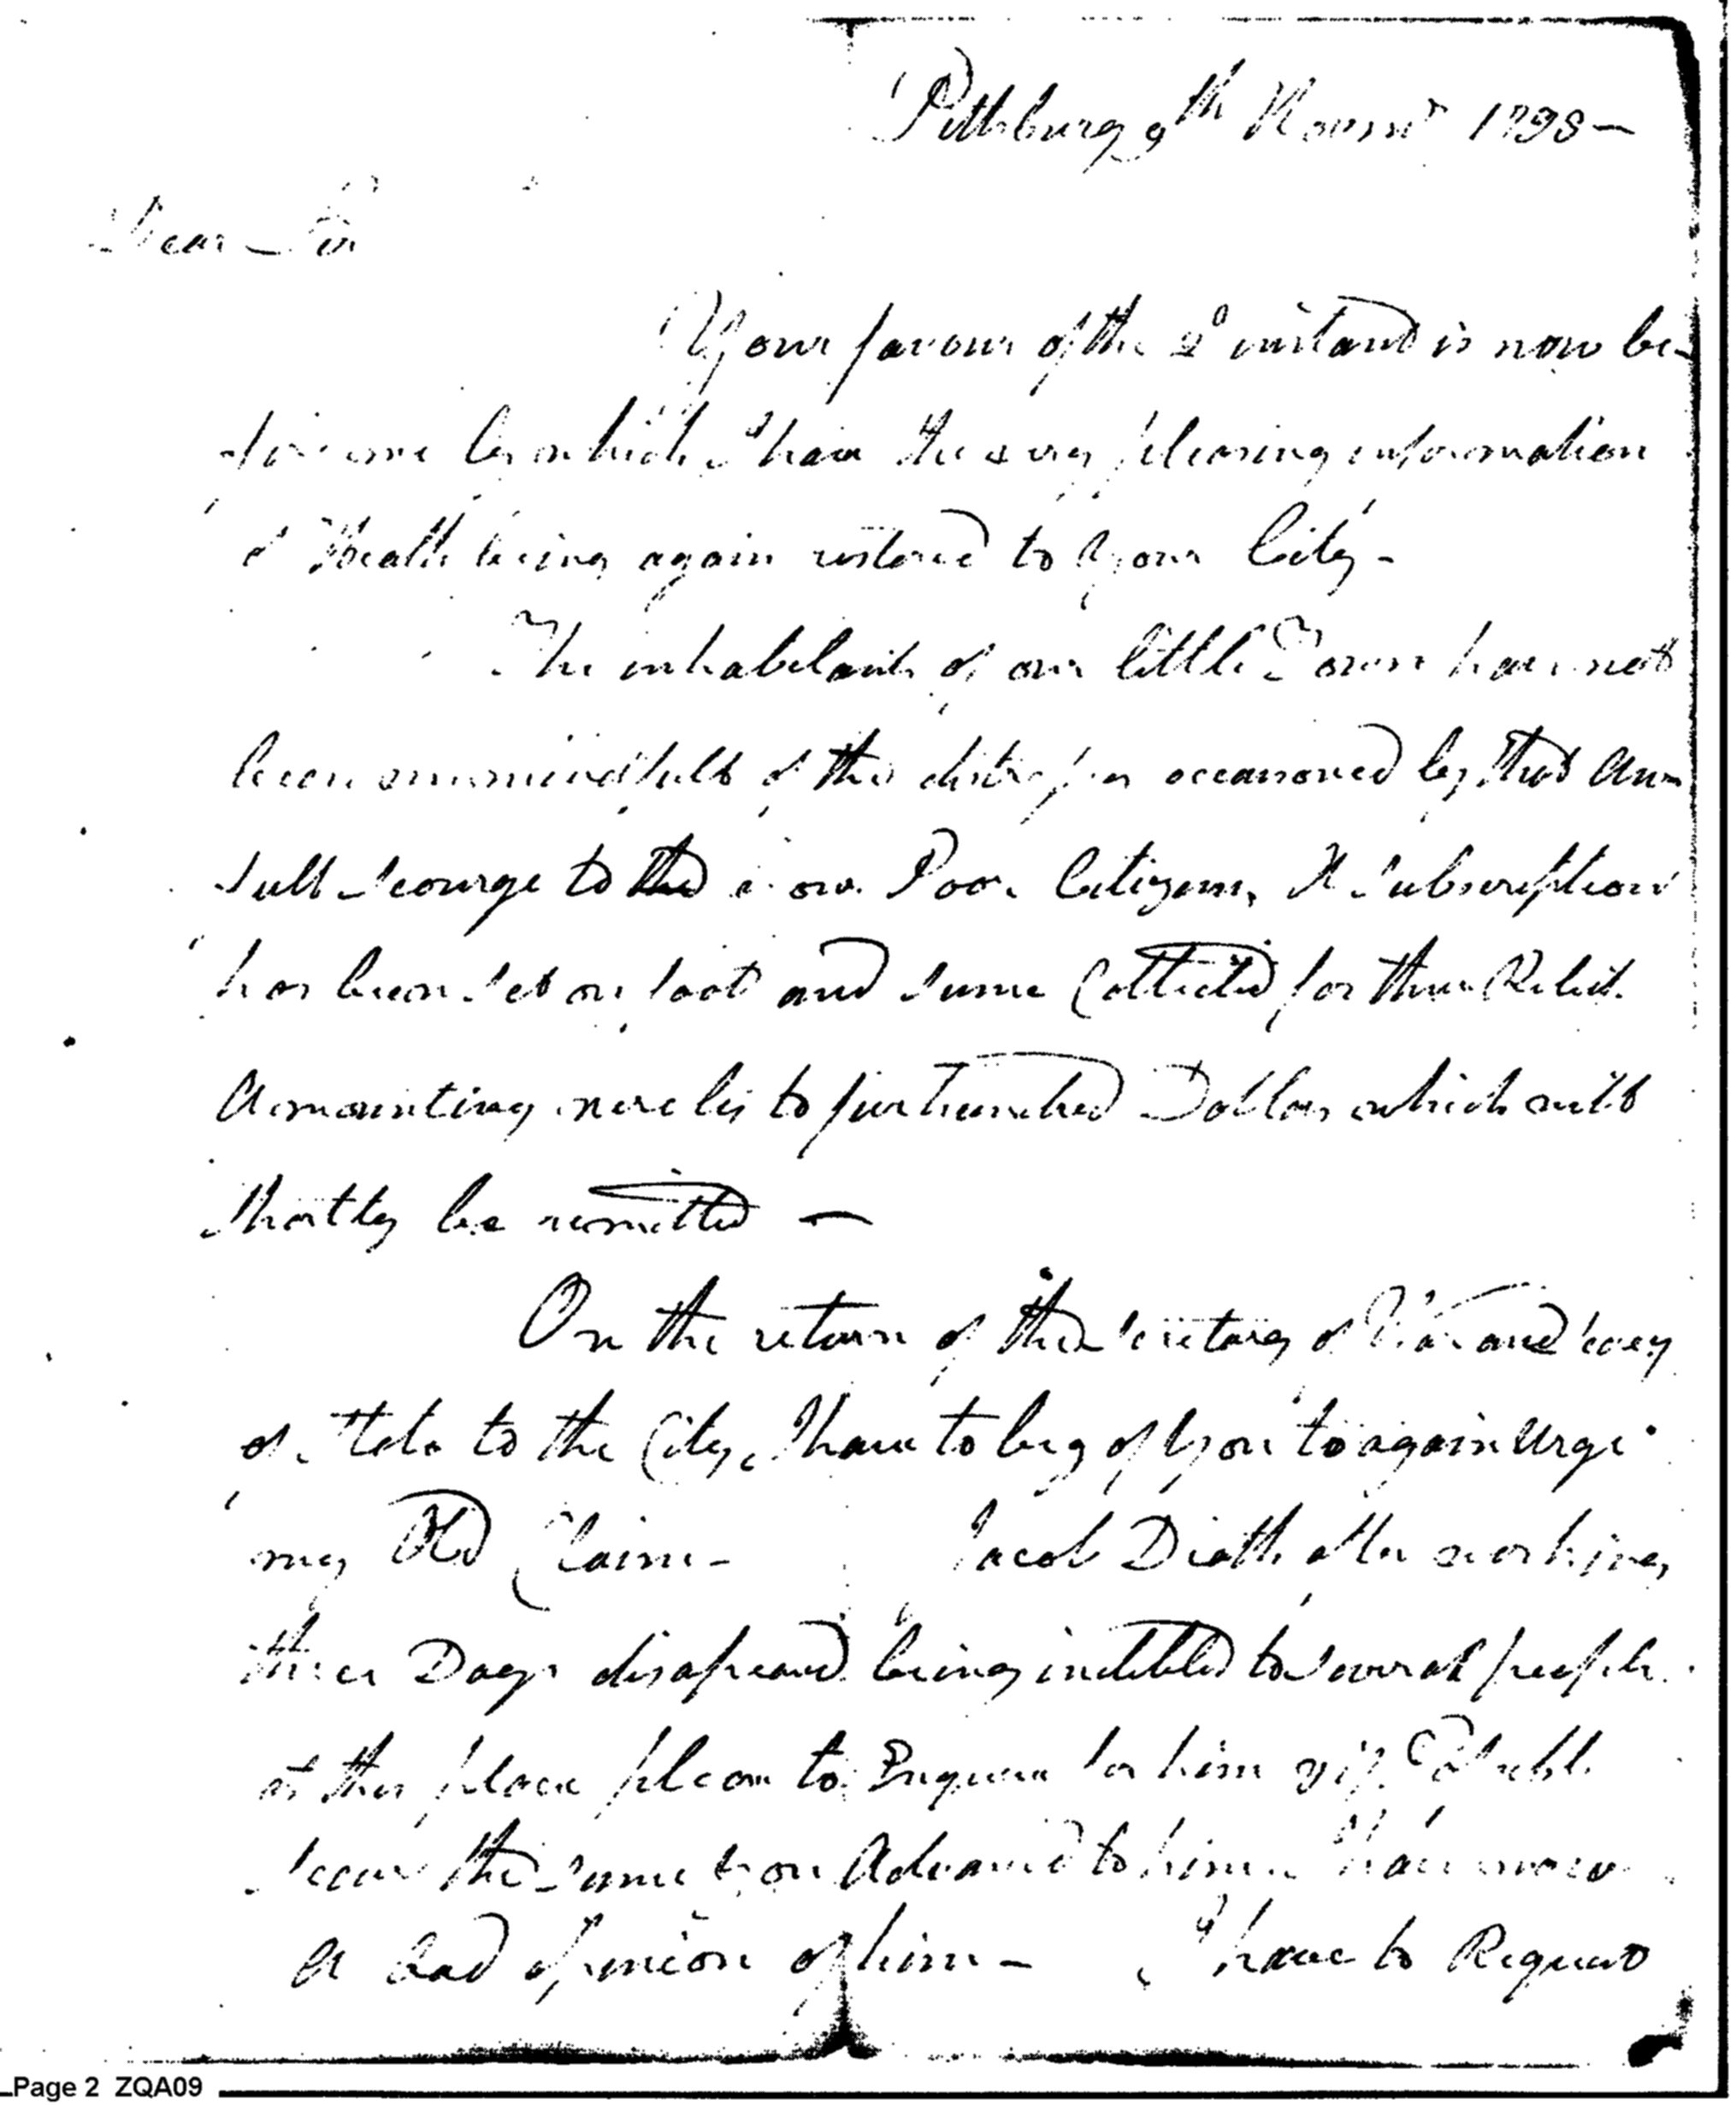 Pittsburg 9th Novemr 1798 —
Dear Sir
Your favour of the 2d instand is now be-
fore me by which I have the very pleasing information
of Health being again restored to Your City -
The inhabitants of our little Town have not
been unmindfull of the distresses occasioned by that Aw-
full Scourge to the poor Citizens, A Subscription
has been Set on foot and Sums Collected for their Relief
Amounting nearly to hundred Dollars which will
Shortly be remitted —
On the return of the Secretary of War and
of State to the City, I have to beg of You to again Urge
my Old Claim - Jacob after working
three Days disapeared being indebted to Several people
at this place please to Enquire for him
the Sums You Advanced to him
A bad opinion of him - I have to Request
Page 2 ZQA09